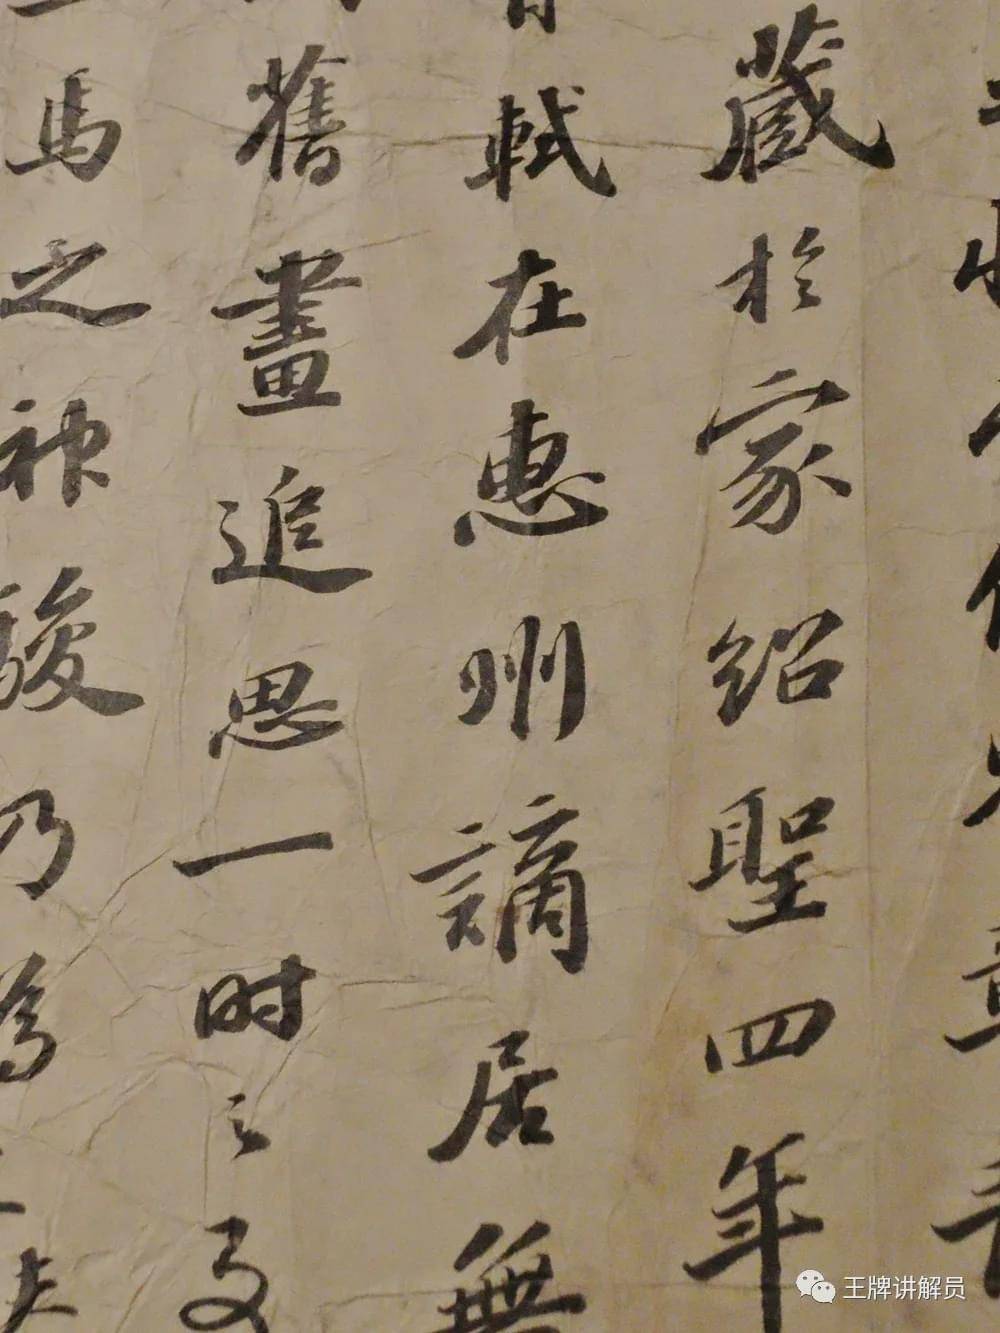 藏於家紹聖四年
軾在惠州謫居無
舊畫追思一時之事
馬之神駿乃為
王牌讲解员